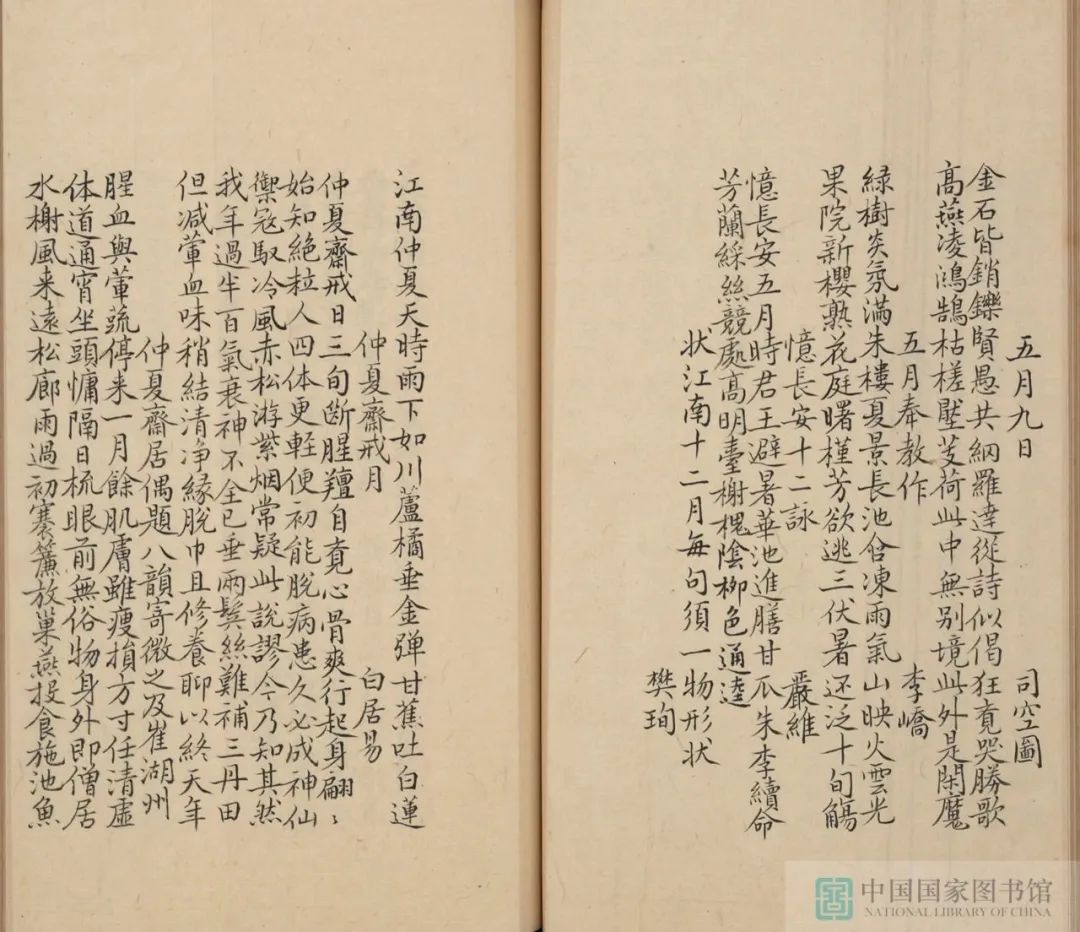 五月九日　司空圖
金石皆銷鑠賢愚共網羅達從詩似偈狂竟哭勝歌
高燕凌鴻鵠枯槎壓芰荷此中無别境此外是閑魔
五月奉教作　李嶠
緑樹炎氛滿朱樓夏景長池含凍雨氣山映火雲光
果院新櫻熟花庭曙槿芳欲逃三伏暑还泛十旬觴
憶長安十二詠　嚴維
憶長安五月時君王避暑華池進膳甘瓜朱李續命
芳蘭綵絲競處高明臺榭槐陰柳色通逵
狀江南十二月每句須一物形状
樊珣
江南仲夏天時雨下如川蘆橘垂金彈甘蕉吐白蓮
仲夏齋戒月　白居易
仲夏齋戒日三旬斷腥羶自竟心骨爽行起身翩〻
始知絶粒人四体更軽便初能脱病患久必成神仙
禦寇馭冷風赤松游紫烟常疑此說謬今乃知其然
我年過半百氣衰神不全已垂兩鬢絲難補三丹田
但減葷血味稍結清净緣脱巾且修養聊以終天年
仲夏齋居偶題八韻寄微之及崔湖州
腥血與葷蔬停来一月餘肌膚雖瘦損方寸任清虚
体道通宵坐頭慵隔日梳眼前無俗物身外即僧居
水榭風来遠松廊雨過初褰簾放巢燕投食施池魚
中国国家图书馆
NATIONAL LIBRARY OF CHINA